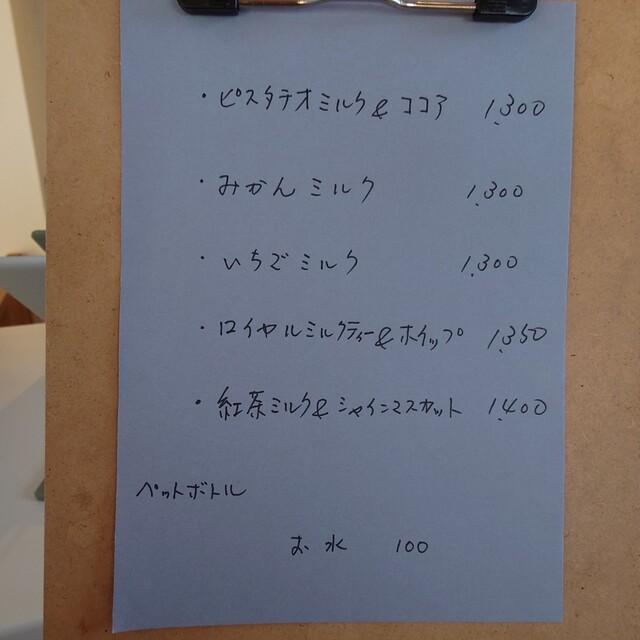 ・ピスタチオミルク& ココア 1,300
・みかんミルク 1,300
・いちごミルク 1,300
・ロイヤルミルクティー&ホイップ 1,350
・紅茶ミルク& シャインマスカット 1,400
ペットボトル
お水 100